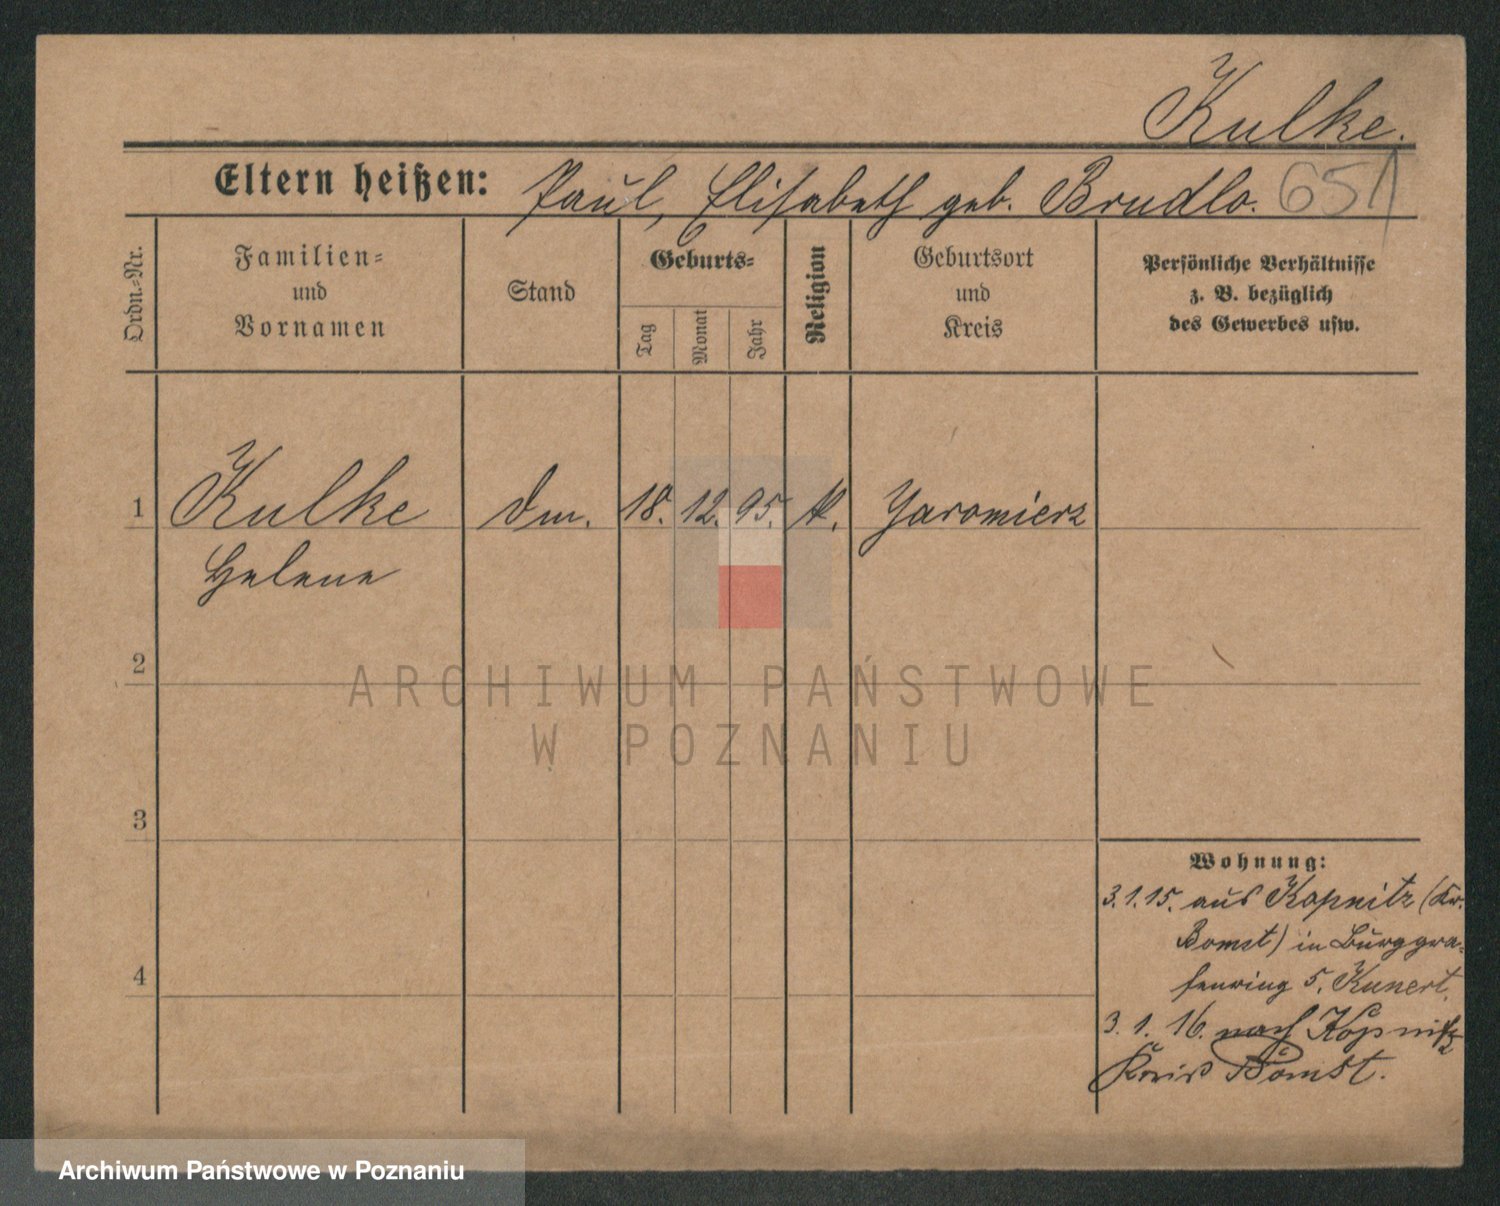 Kulke.
Eltern heißen: Paul, Elisabeth geb. Brudlo. 651
Ordn.-Nr.
Familien-
und
Vornamen
Stand
Geburts-
Tag
Monat
Jahr
Religion
Geburtsort
und
Kreis
Persönliche Verhältnisse
z. B. bezüglich
des Gewerbes usw.
1 Kulke 18. 12. 95. k. Jaromierz
Helene
2
3
4
Wohnung:
3.1.15. aus Kopnitz (Kr.
Bomst) in Burggra-
fenring 5. Kunert.
3. 1. 16. nach Kopnitz
Kreis Bomst.
ARCHIWUM PAŃSTWOWE
W POZNANIU
Archiwum Państwowe w Poznaniu